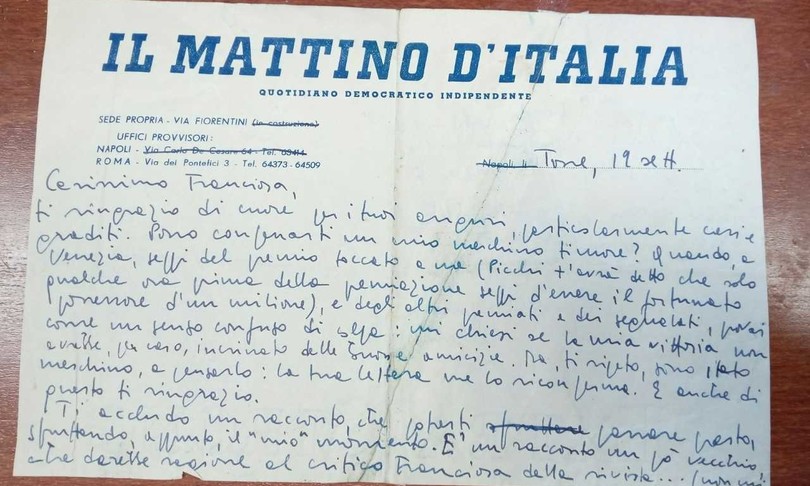 IL MATTINO D'ITALIA
QUOTIDIANO DEMOCRATICO INDIPENDENTE
SEDE PROPRIA - VIA FIORENTINI (in costruzione)
UFFICI PROVVISORI:
NAPOLI - Via Carlo De Cesare 64 - Tel. 63414
ROMA - Via dei Pontefici 3 - Tel. 64373 - 64509
Napoli li Torre, 19 sett.
Carissimo Franciosa,
ti ringrazio di cuore per i tuoi auguri, particolarmente cari e
graditi. Posso confessarti un mio meschino timore? Quando, a
Venezia, seppi del premio toccato a me (Picchi t'avrà detto che solo
qualche ora prima della premiazione seppi d'essere il fortunato
possessore d'un milione), e degli altri premiati e dei segnalati, provai
come un senso confuso di : mi chiesi se la mia vittoria non
avesse, per caso, incrinato delle buone amicizie. Ma, ti ripeto, sono stato
meschino, a pensarlo: la tua lettera me lo riconferma. E anche di
questo ti ringrazio.
Ti accludo un racconto, che potresti sfruttare passare presto,
sfruttando, appunto, il "mio" momento. È un racconto un pò vecchio,
che darebbe ragione al critico Franciosa della rivista... (non mi